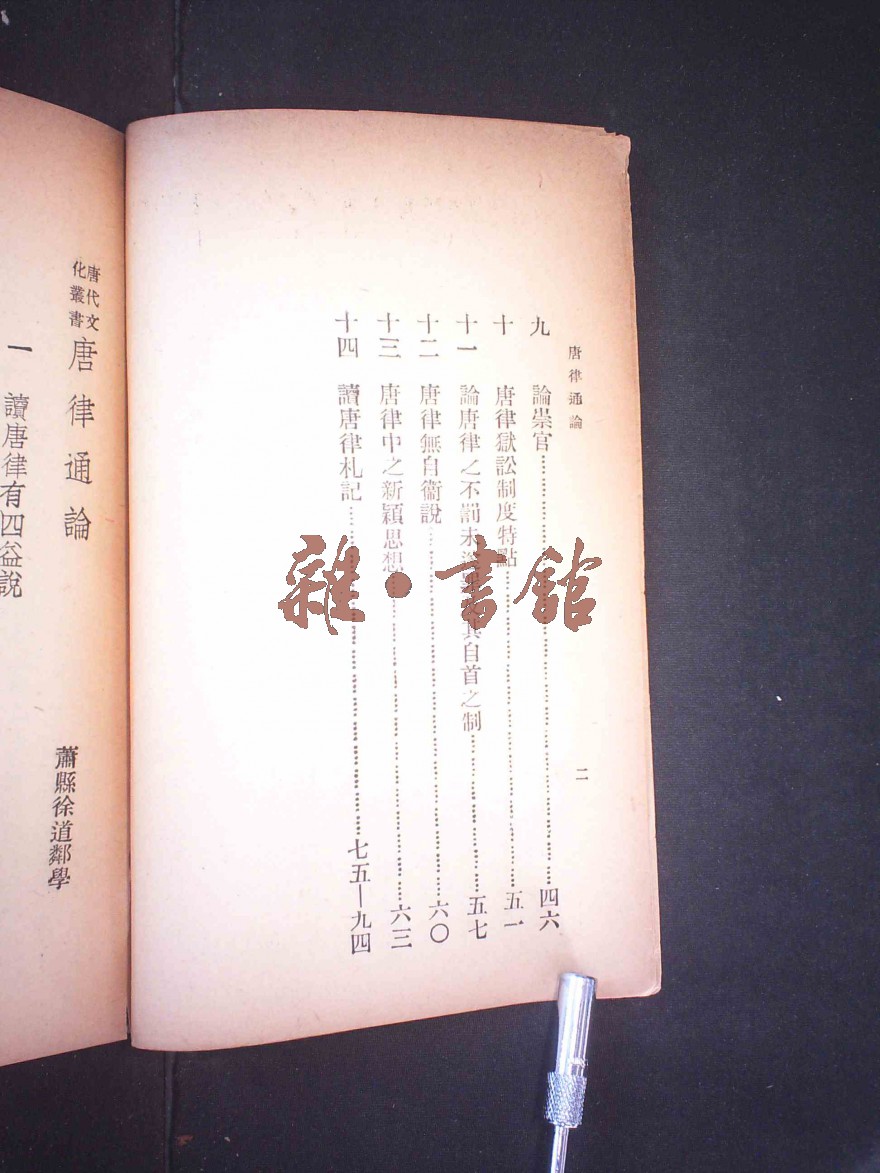 唐律通論
二
九 論崇官……四六
十 唐律獄訟制度特點……五一
十一 論唐律之不罰未 其自首之制……五七
十二 唐律無自衞說……六〇
十三 唐律中之新穎思想……六三
十四 讀唐律札記……七五—九四
唐代文化叢書 唐律通論
蕭縣徐道鄰學
一 讀唐律有四益說
雜·書館